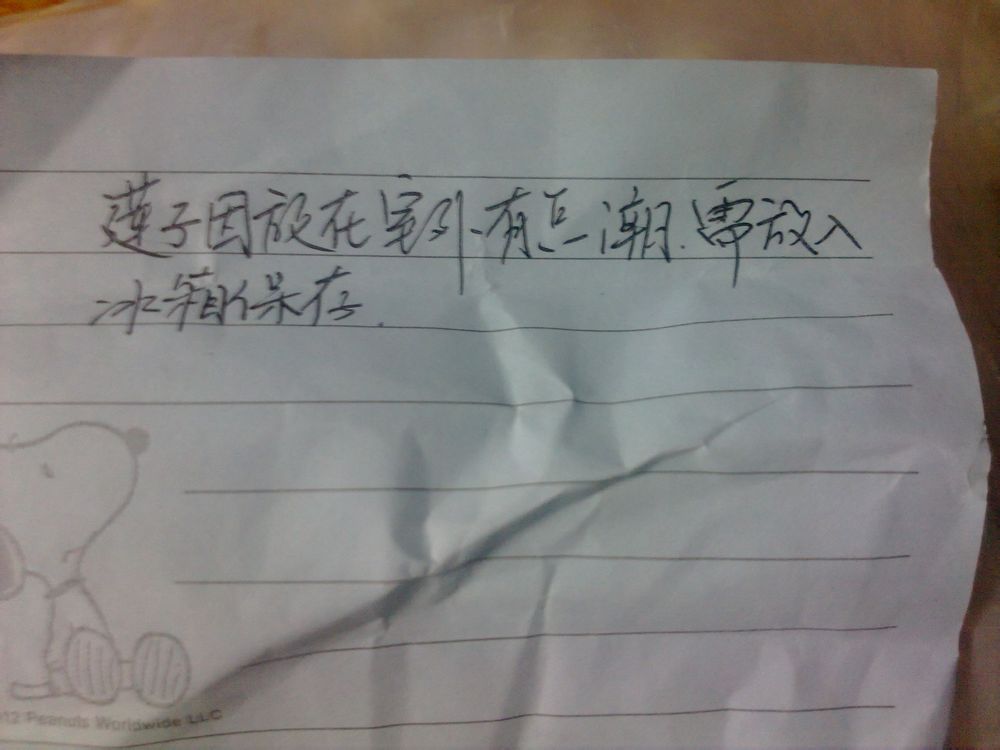 莲子因放在室外.有点潮.需放入
冰箱保存.
12 Peanuts Worldwide LLC